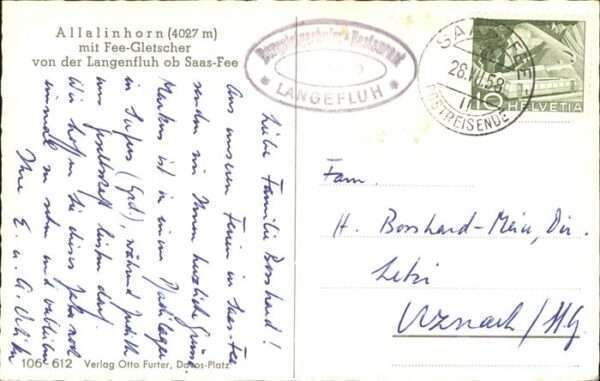 Allalinhorn (4027 m)
mit Fee-Gletscher
von der Langenfluh ob Saas-Fee
Restaurant
* LANGEFLUH *
SAAS-FEE
26.VII.58
POSTREISENDE
10 HELVETIA
Liebe Familie Bosshard!
Aus unseren Ferien in Saas-Fee
senden wir Ihnen herzliche Grüsse.
Markus ist in einem
in (Grb.), während Judith
uns Gesellschaft leisten darf.
Wir hoffen Sie dieses Jahr noch
einmal zu sehen und verbleiben
Ihre E. u. A.
Fam.
H. Bosshard-Meier, Dir.
Letzi
Uznach/SG.
106-612 Verlag Otto Furter, Davos-Platz